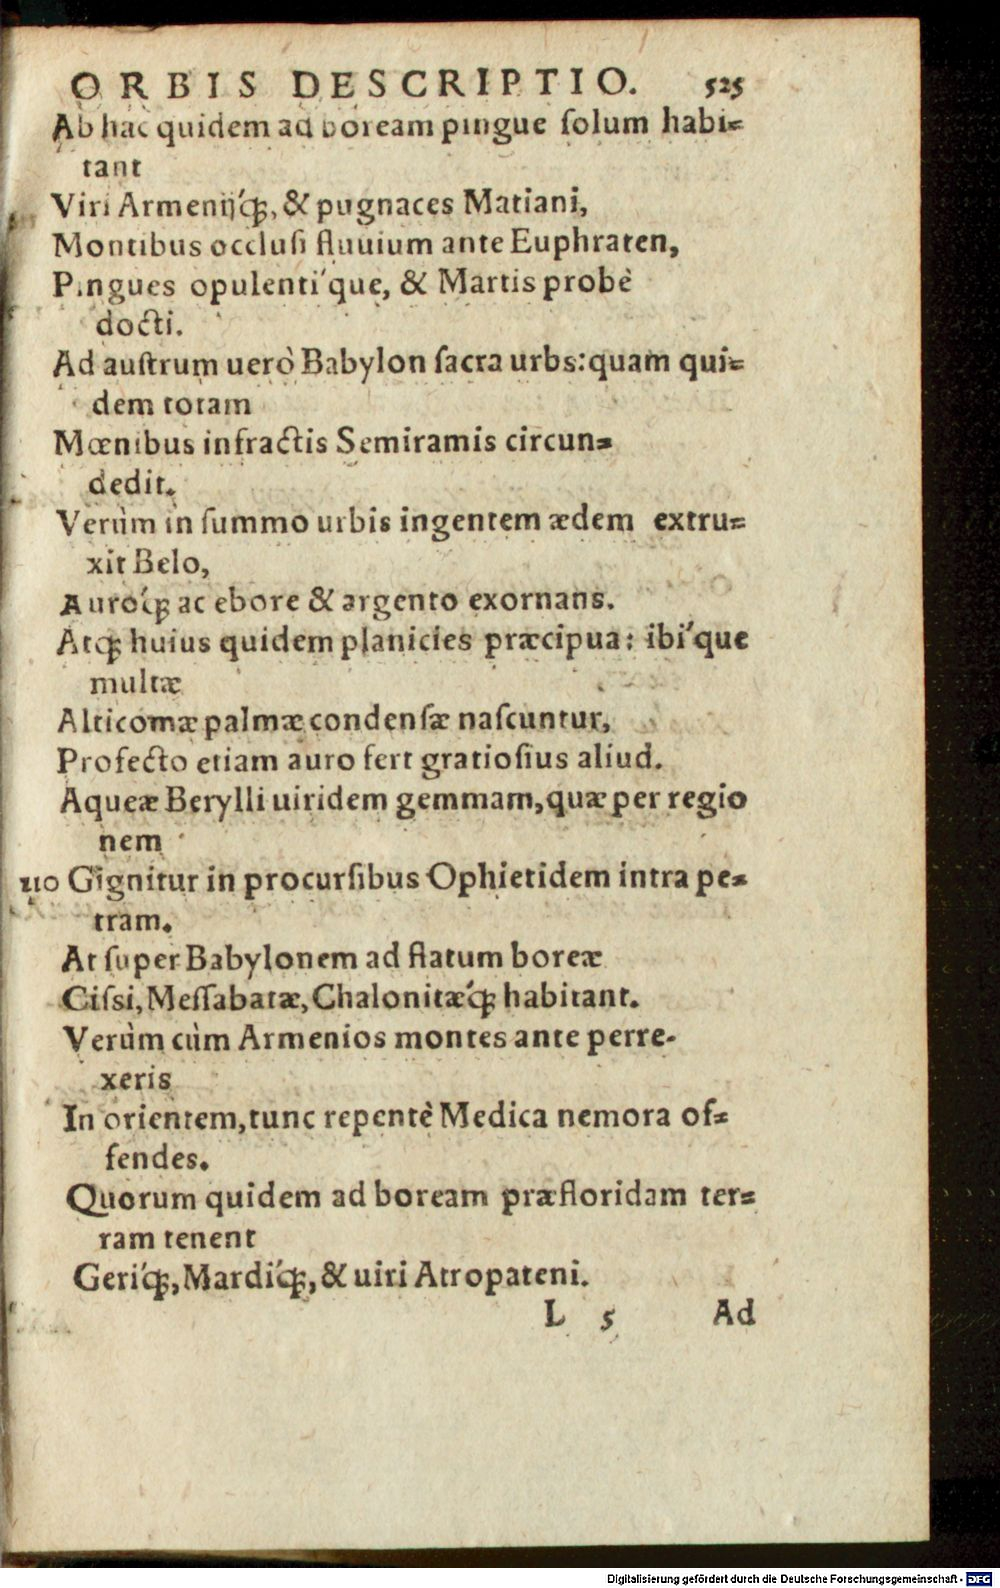 ORBIS DESCRIPTIO. 525
Ab hac quidem ad boream pingue ſolum habi⸗
tant
Viri Armenijq́ꝫ, & pugnaces Matiani,
Montibus occluſi fluuium ante Euphraten,
Pingues opulenti´que, & Martis probè
docti.
Ad auſtrum uerò Babylon ſacra urbs: quam qui⸗
dem totam
Mœnibus infractis Semiramis circun⸗
dedit.
Verùm in ſummo urbis ingentem ædem extru⸗
xit Belo,
Auroq́ꝫ ac ebore & argento exornans.
Atqꝫ huius quidem planicies præcipua: ibi´que
multæ
Alticomæ palmæ condenſæ naſcuntur,
Profecto etiam auro fert gratioſius aliud.
Aqueæ Berylli uiridem gemmam, quæ per regio
nem
110 Gignitur in procurſibus Ophietidem intra pe⸗
tram.
At ſuper Babylonem ad flatum boreæ
Ciſsi, Meſſabatæ, Chalonitæq́ꝫ habitant.
Verùm cùm Armenios montes ante perre-
xeris
In orientem, tunc repentè Medica nemora of⸗
fendes.
Quorum quidem ad boream præfloridam ter⸗
ram tenent
Geriq́ꝫ, Mardiq́ꝫ, & uiri Atropateni.
L 5 Ad
Digitalisierung gefördert durch die Deutsche Forschungsgemeinschaft - DFG